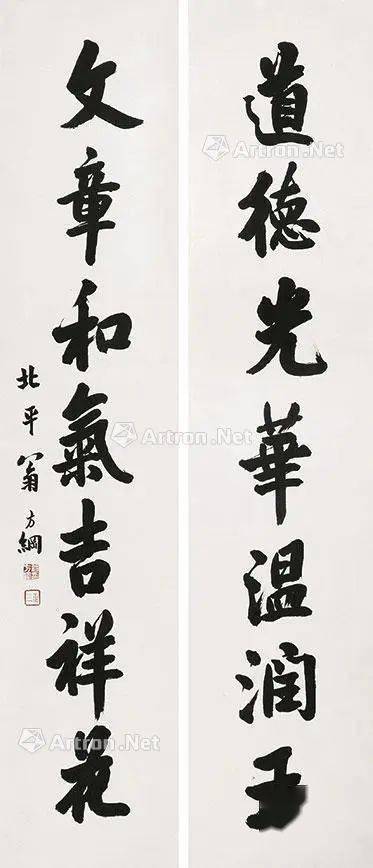 道德光華温潤
文章和氣吉祥花
北平翁方綱
Artron.Net
Artron.Net
Artron.Net
Artron.Net